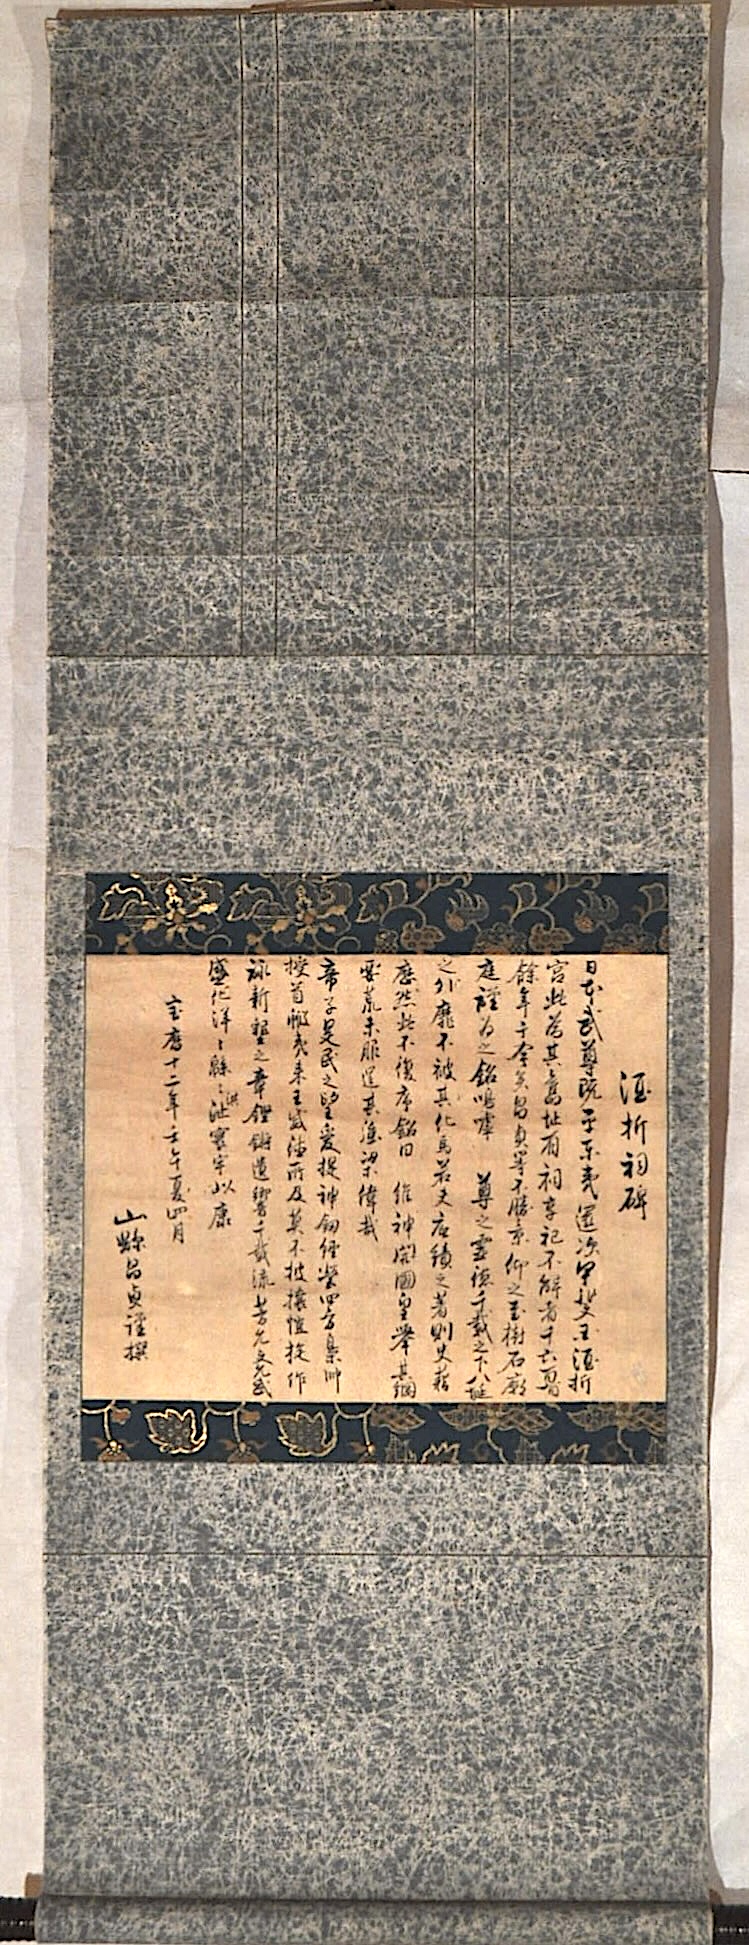 酒折祠碑
日本武尊既平東夷還次甲斐国酒折
宮此為其舊址有祠享祀不解者千六百
餘年于今矣昌貞等不勝景仰之至樹石廟
庭謹為之銘嗚嘑 尊之霊徳千載之下八埏
之外靡不被其化焉若夫 績之著則史籍
歴然此不復序銘曰 維神開國皇舉其綱
要荒未服 其 梁偉哉
帝子是民之望爰提神劔経營四方梟帥
授首 夷来王威徳所及莫不披攘愷旋作
詠新墾之章鏗鏘遺響千載流芳允文允武
盛化洋々緜々 寰宇以康
洪
宝暦十二年壬午夏四月
山縣昌貞謹撰